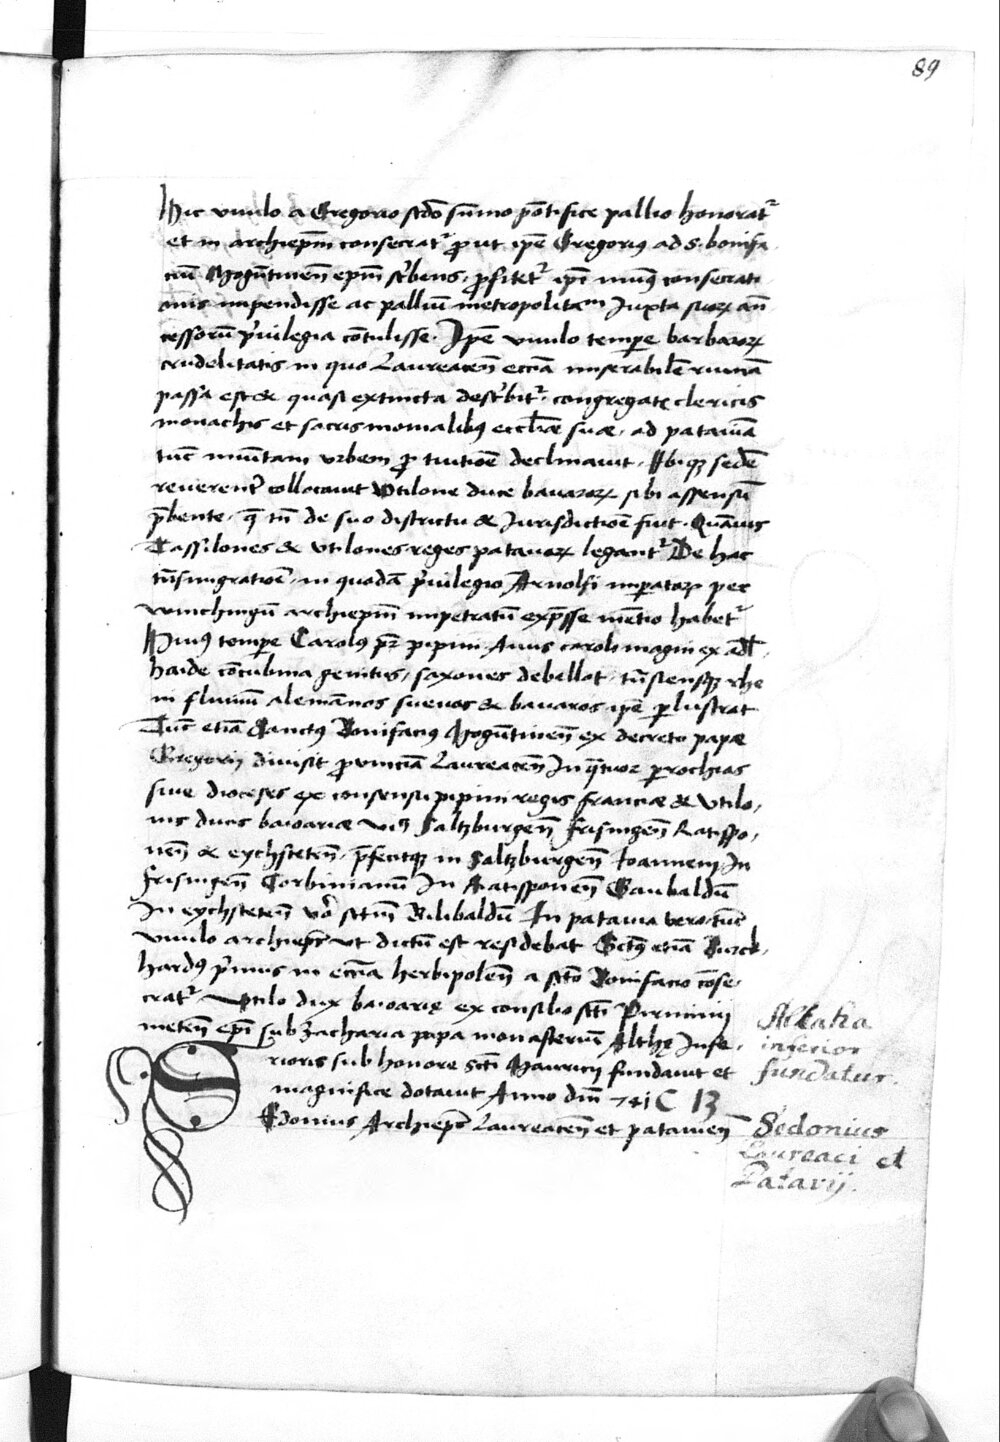 89
Hic vivilo a Gregorio scdo sūmo pōtifice pallio honorat̃
et in archiepm̄ consecrat̃ ꝓut ipẽ Gregoriꝰ ad s. bonifa
ciū Mogūtineñ epm̄ sc̃bens, ꝓfitet̃ ipī munꝰ consecrati
onis impendisse ac palliū metropolitam Juxta suoꝝ añ
cessorū p̃uilegia cōtulisse. Ipẽ vivilo tempẽ barbaroꝝ
crudelitatis in quo Laureaceñ ecc̃ia miserabilē ruinā
passa est & quasi extincta desc̃bit̃. congregatꝭ clericis
monachis et sacrismonialibꝰ eccl̃iæ suæ, ad patauiā
tūc munitam vrbem ꝓ tuitiōe declinauit. Ibiqꝫ sedē
reuerent̃ collocauit Vtilone duce bauaroꝝ sibi assensū
p̃bente. q̃ tñ de suo districtu & Jurisdictiōe fuit. Quāuis
Tassilones & Vtilones reges patauoꝝ legant̃ De hac
trñsmigratiōe in quodā p̃uilegio Arnolfi imperatoꝝ per
winchingū archiepm̄ impetratū exp̃sse mentio habet̃
Huiꝰ tempẽ Carolꝰ pr̃ pipini Auus caroli magni ex adl̃
haide cōcubina genitus, saxones debellat, trñsiensqꝫ rhe
ni fluuiū alemānos sueuos & bauaros ipẽ plustrat
Tūc etiā Sanctꝰ Bonifaciꝰ Mogūtineñ ex decreto papæ
Gregorij diuisit ꝓuinciā Laureaceñ In q̃tuor parochias
siue dioceses ex consensu pipini regis franciæ & Vtilo,
nis ducis baioariæ viꝫ Saltzburgeñ frisingeñ Ratispo,
neñ & eychsteteñ. p̃fecitqꝫ in Saltzburgeñ Joannem In
frisingeñ Corbinianū In Ratisponeñ Gaubaldū
In eychsteteñ v̊o sctm̄ Bilibaldū In patauia vero tūc
vivilo archiepс̃ vt dictū est residebat Sctꝰ etiā Burck,
hardꝰ p̃mus in ecc̃ia herbipoleñ a scto Bonifacio cōse,
crat̃. Vtilo dux baioarię ex consilio sctī Pirminij
meteñ epī sub Zacharia papa monasteriū Althę Infe,
rioris sub honore sctī Mauricij fundauit et
magnifice dotauit Anno dm̄ 741 C 13
Sedonius Archiepс̃ Laureaceñ et patauieñ
Altaha
inferior
fundatur.
Sedonius
Laureaci et
Patavij.